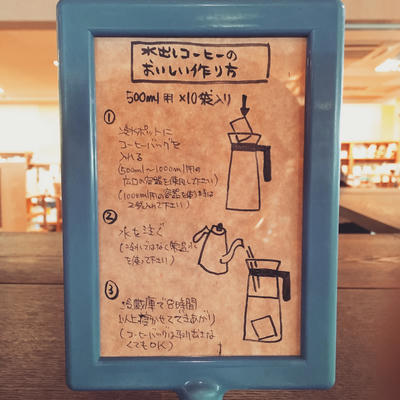 水出しコーヒーの
おいしい作り方
500ml用 ×10袋入り
①
冷水ポットに
コーヒーバッグを
入れる
(500ml〜1000ml用の
広口の容器を使用して下さい)
(1000ml用の容器を使う時は
2袋入れて下さい)
②
水を注ぐ
(冷水ではなく常温水
を使って下さい)
③
冷蔵庫で8時間
以上置かせてできあがり
(コーヒーバッグは取り出さな
くてもOK)